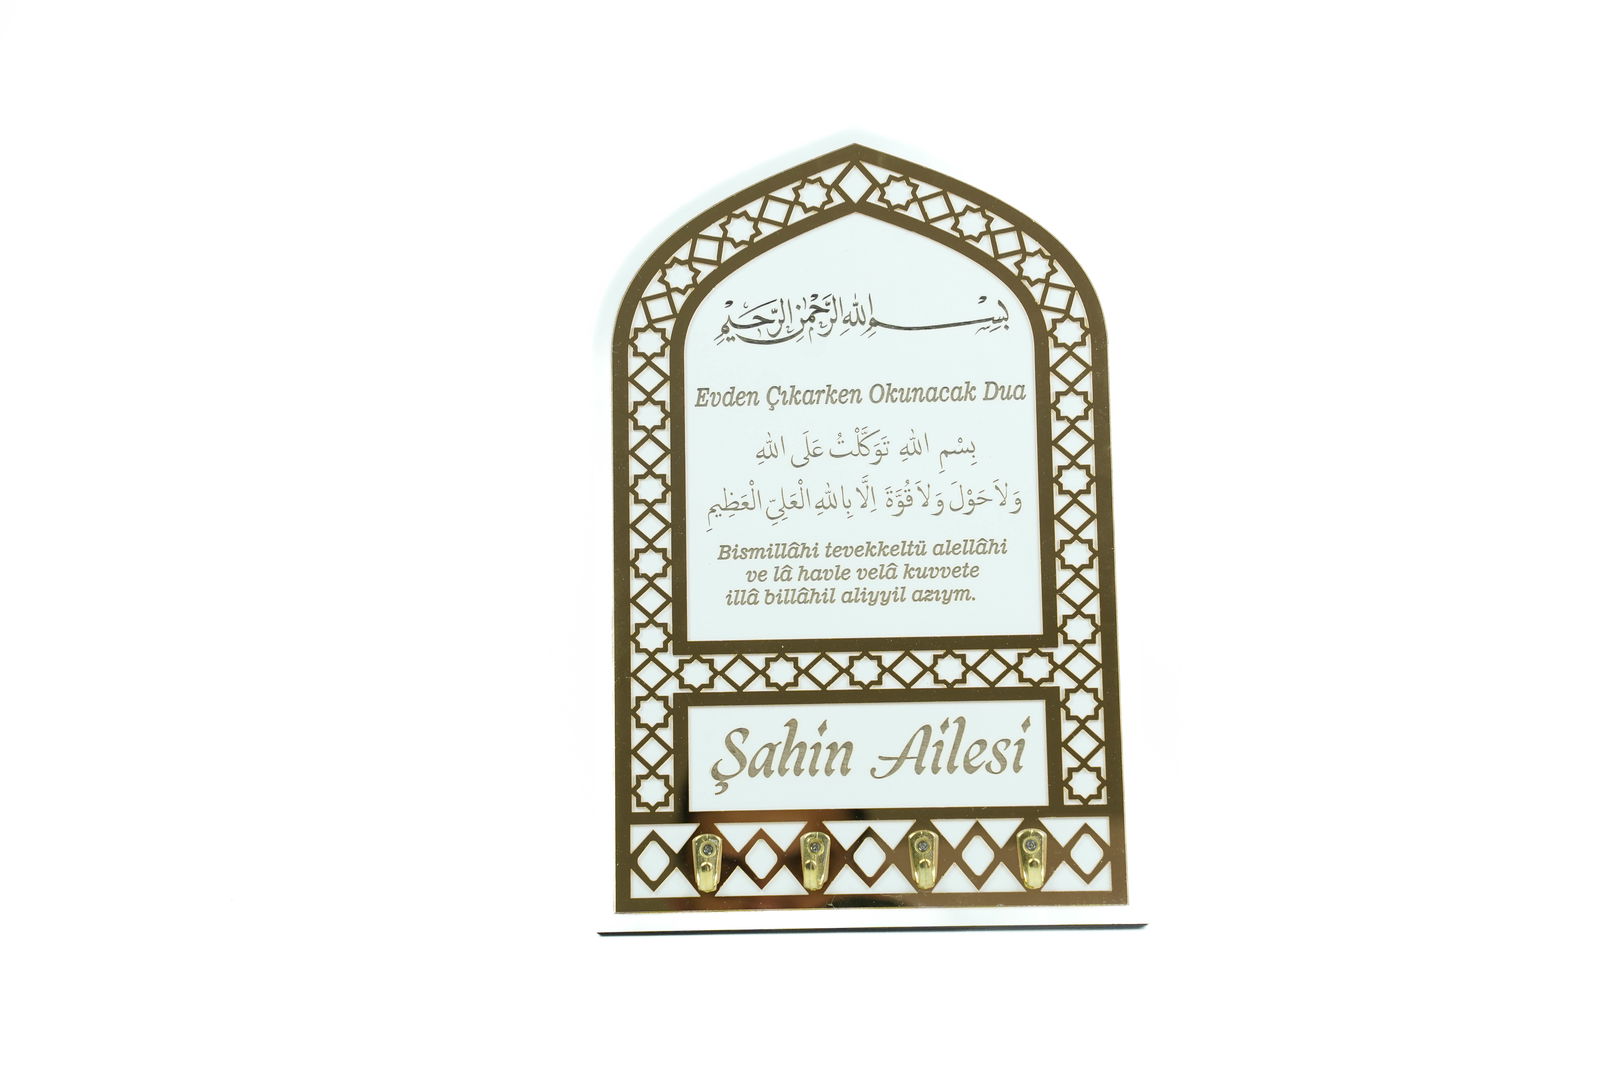 بِسْمِ اللهِ الرَّحْمٰنِ الرَّحِيْمِ
Evden Çıkarken Okunacak Dua
بِسْمِ اللهِ تَوَكَّلْتُ عَلَى اللهِ
وَلاَ حَوْلَ وَلاَ قُوَّةَ اِلَّا بِاللهِ الْعَلِيِّ الْعَظِيمِ
Bismillâhi tevekkeltü alellâhi
ve lâ havle velâ kuvvete
illâ billâhil aliyyil azıym.
Şahin Ailesi